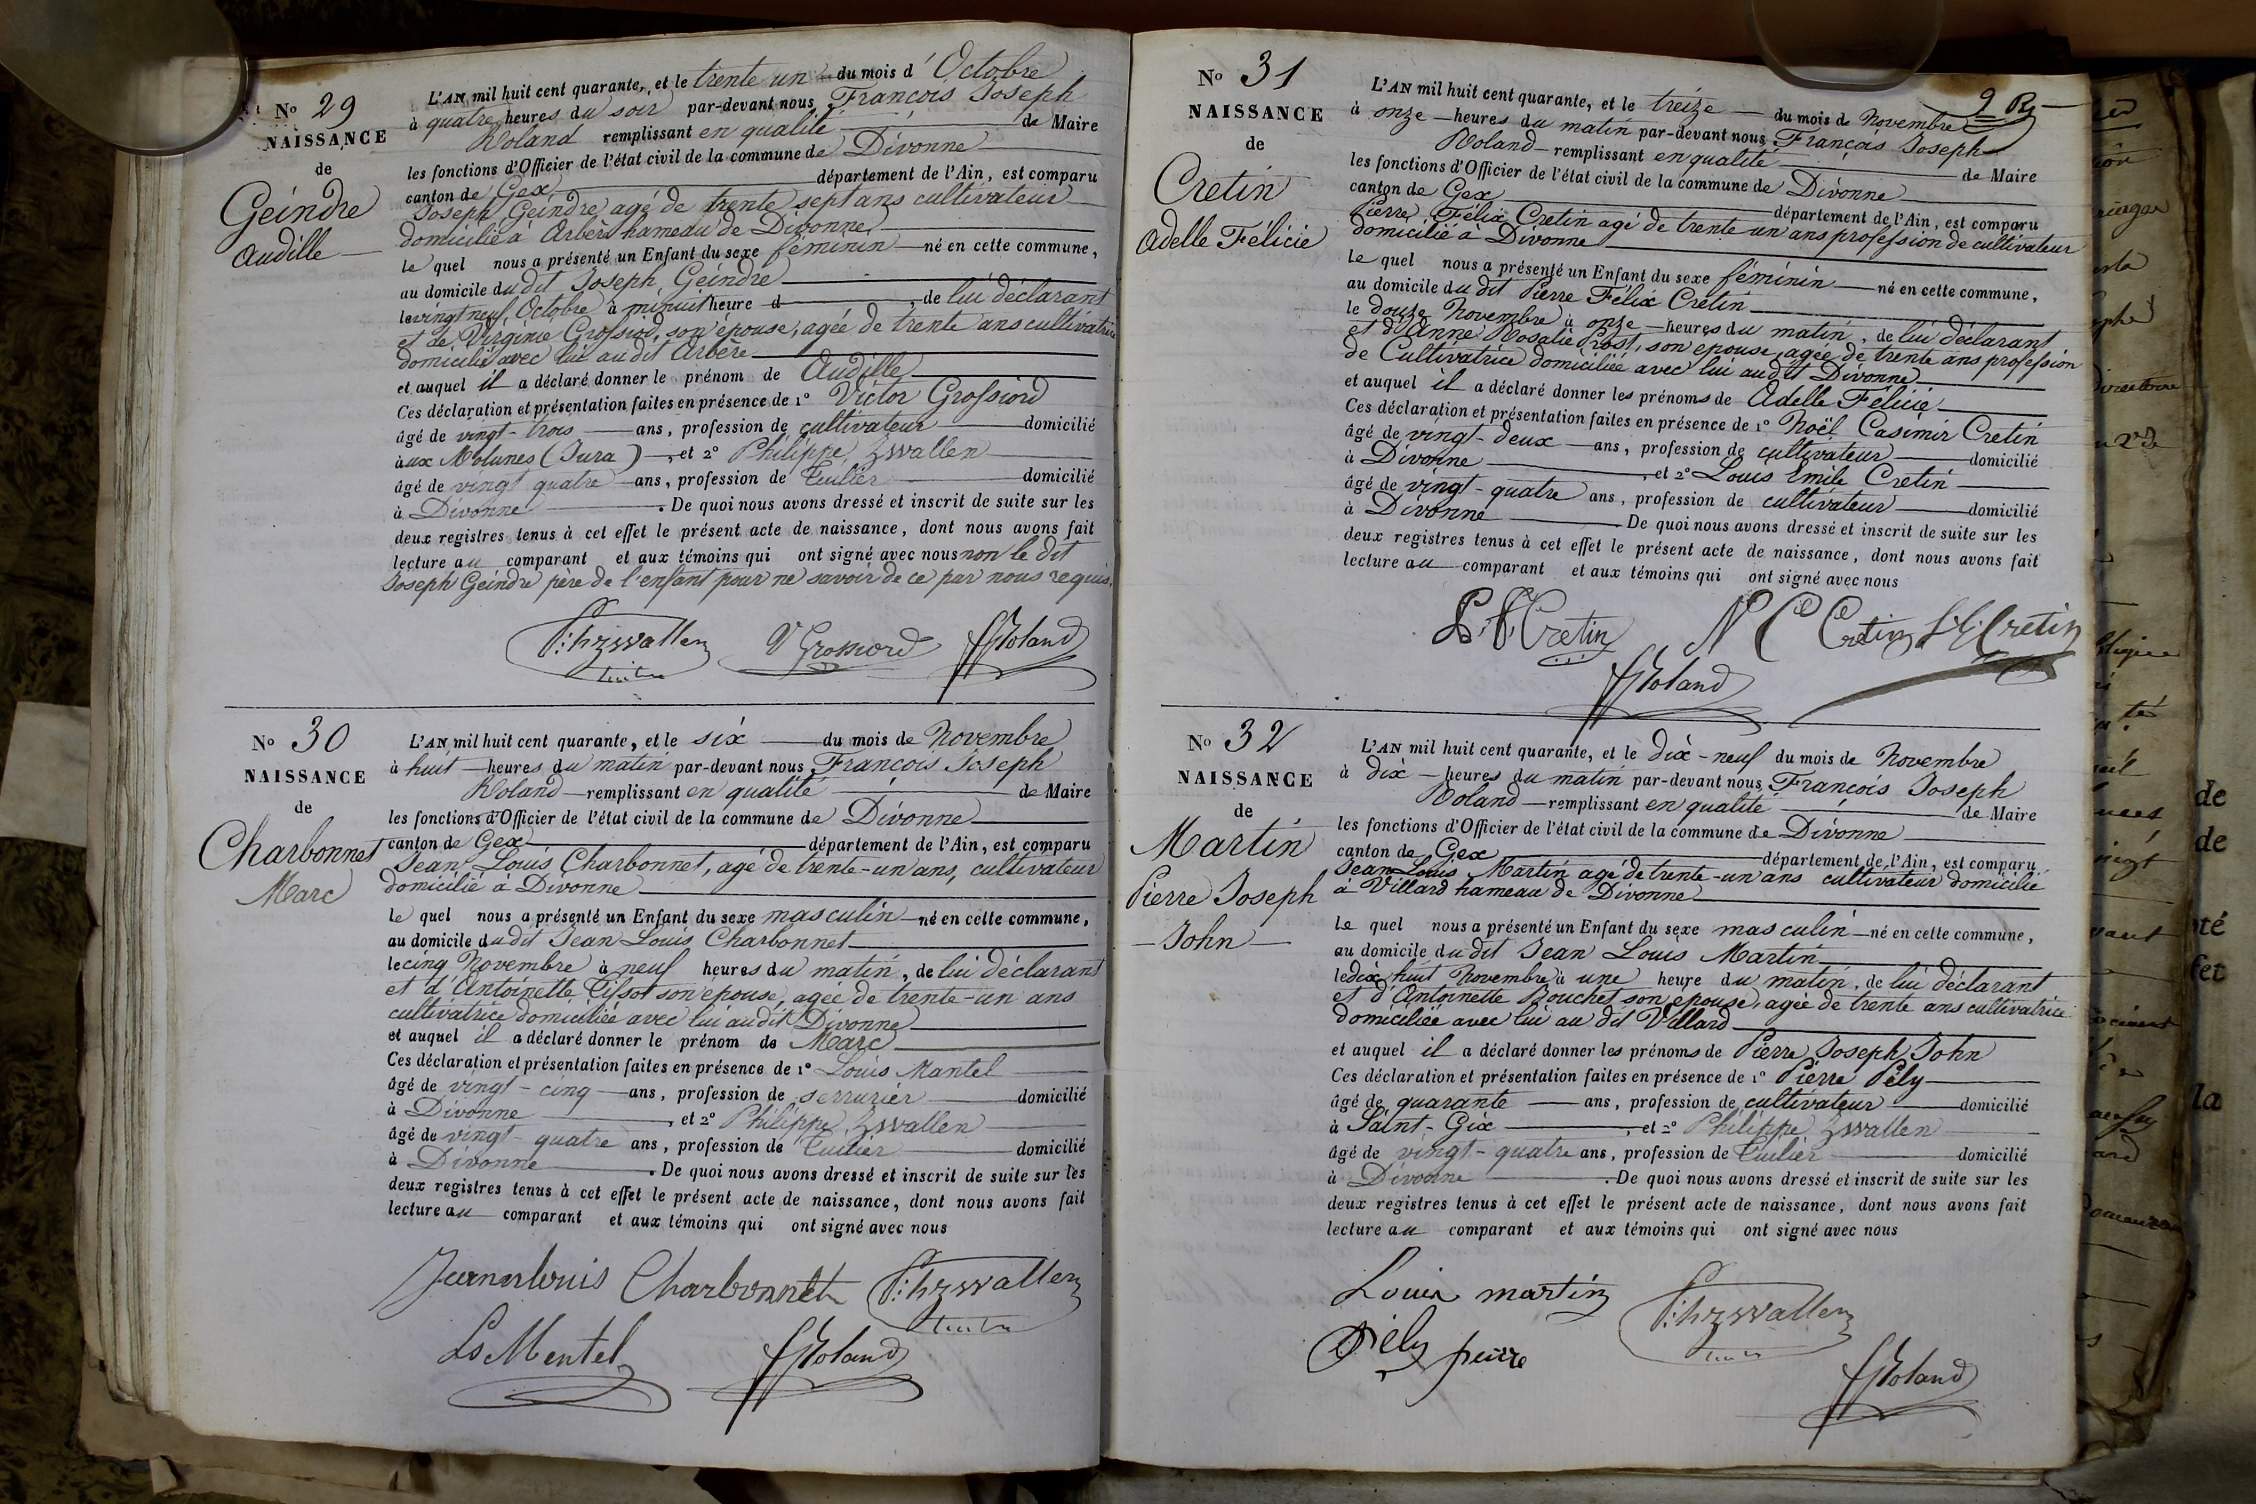 No 29
NAISSANCE
de
Geindre
Audille
L'AN mil huit cent quarante, et le trente un du mois d' Octobre
à quatre heures du soir par-devant nous François Joseph
Roland remplissant en qualité de Maire
les fonctions d'Officier de l'état civil de la commune de Divonne
canton de Gex département de l'Ain, est comparu
Joseph Geindre agé de trente sept ans cultivateur
domicilié à Arbère hameau de Divonne
le quel nous a présenté un Enfant du sexe féminin né en cette commune,
au domicile du dit Joseph Geindre
le vingt neuf Octobre à minuit heure d , de lui déclarant
et de Virginie Grossiord, son épouse, agée de trente ans cultivatrice
domicilié avec lui au dit Arbère
et auquel il a déclaré donner le prénom de Audille
Ces déclaration et présentation faites en présence de 1° Victor Grossiord
âgé de vingt-trois ans, profession de cultivateur domicilié
aux Molunes (Jura), et 2° Philippe Zwallen
âgé de vingt quatre ans, profession de Tuilier domicilié
à Divonne . De quoi nous avons dressé et inscrit de suite sur les
deux registres tenus à cet effet le présent acte de naissance, dont nous avons fait
lecture au comparant et aux témoins qui ont signé avec nous non le dit
Joseph Geindre père de l'enfant pour ne savoir de ce par nous requis.
P: hzwallen V Grossiord FJRoland
No 30
NAISSANCE
de
Charbonnet
Marc
L'AN mil huit cent quarante, et le six du mois de Novembre
à huit heures du matin par-devant nous François Joseph
Roland remplissant en qualité de Maire
les fonctions d'Officier de l'état civil de la commune de Divonne
canton de Gex département de l'Ain, est comparu
Jean Louis Charbonnet, agé de trente-un ans, cultivateur
domicilié à Divonne
le quel nous a présenté un Enfant du sexe masculin né en cette commune,
au domicile du dit Jean Louis Charbonnet
le cinq Novembre à neuf heures du matin, de lui déclarant
et d'Antoinette Tissot son épouse, agée de trente-un ans
cultivatrice domiciliée avec lui au dit Divonne
et auquel il a déclaré donner le prénom de Marc
Ces déclaration et présentation faites en présence de 1° Louis Mantel
âgé de vingt-cinq ans, profession de serrurier domicilié
à Divonne , et 2° Philippe Zwallen
âgé de vingt-quatre ans, profession de Tuilier domicilié
à Divonne . De quoi nous avons dressé et inscrit de suite sur les
deux registres tenus à cet effet le présent acte de naissance, dont nous avons fait
lecture au comparant et aux témoins qui ont signé avec nous
Jean louis Charbonnet P: hzwallen
Ls Mentel FJRoland
9 R
No 31
NAISSANCE
de
Cretin
Adelle Félicie
L'AN mil huit cent quarante, et le treize du mois de Novembre
à onze heures du matin par-devant nous François Joseph
Roland remplissant en qualité de Maire
les fonctions d'Officier de l'état civil de la commune de Divonne
canton de Gex département de l'Ain, est comparu
Pierre Félix Cretin agé de trente-un ans profession de cultivateur
domicilié à Divonne
le quel nous a présenté un Enfant du sexe féminin né en cette commune,
au domicile du dit Pierre Félix Cretin
le douze Novembre à onze heures du matin, de lui déclarant
et d'Anne Rosalie Prost, son épouse, agée de trente ans profession
de Cultivatrice domiciliée avec lui au dit Divonne
et auquel il a déclaré donner les prénoms de Adelle Félicie
Ces déclaration et présentation faites en présence de 1° Noël Casimir Cretin
âgé de vingt-deux ans, profession de cultivateur domicilié
à Divonne , et 2° Louis Emile Cretin
âgé de vingt-quatre ans, profession de cultivateur domicilié
à Divonne . De quoi nous avons dressé et inscrit de suite sur les
deux registres tenus à cet effet le présent acte de naissance, dont nous avons fait
lecture au comparant et aux témoins qui ont signé avec nous
P. F. Cretin N C Cretin L E Cretin
FJRoland
No 32
NAISSANCE
de
Martin
Pierre Joseph
John
L'AN mil huit cent quarante, et le dix-neuf du mois de Novembre
à dix heures du matin par-devant nous François Joseph
Roland remplissant en qualité de Maire
les fonctions d'Officier de l'état civil de la commune de Divonne
canton de Gex département de l'Ain, est comparu
Jean Louis Martin agé de trente-un ans cultivateur domicilié
à Villard hameau de Divonne
le quel nous a présenté un Enfant du sexe masculin né en cette commune,
au domicile du dit Jean Louis Martin
le dix huit Novembre à une heure du matin, de lui déclarant
et d'Antoinette Bouchet son épouse, agée de trente ans cultivatrice
domiciliée avec lui au dit Villard
et auquel il a déclaré donner les prénoms de Pierre Joseph John
Ces déclaration et présentation faites en présence de 1° Pierre Pély
âgé de quarante ans, profession de cultivateur domicilié
à Saint-Gix , et 2° Philippe Zwallen
âgé de vingt-quatre ans, profession de Tuilier domicilié
à Divonne . De quoi nous avons dressé et inscrit de suite sur les
deux registres tenus à cet effet le présent acte de naissance, dont nous avons fait
lecture au comparant et aux témoins qui ont signé avec nous
Louis martin P: hzwallen
Pély pierre
FJRoland